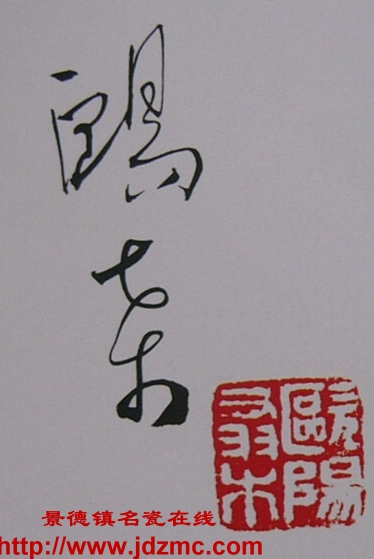 歐陽
桑
景德镇名瓷在线
http://www.jdzmc.com